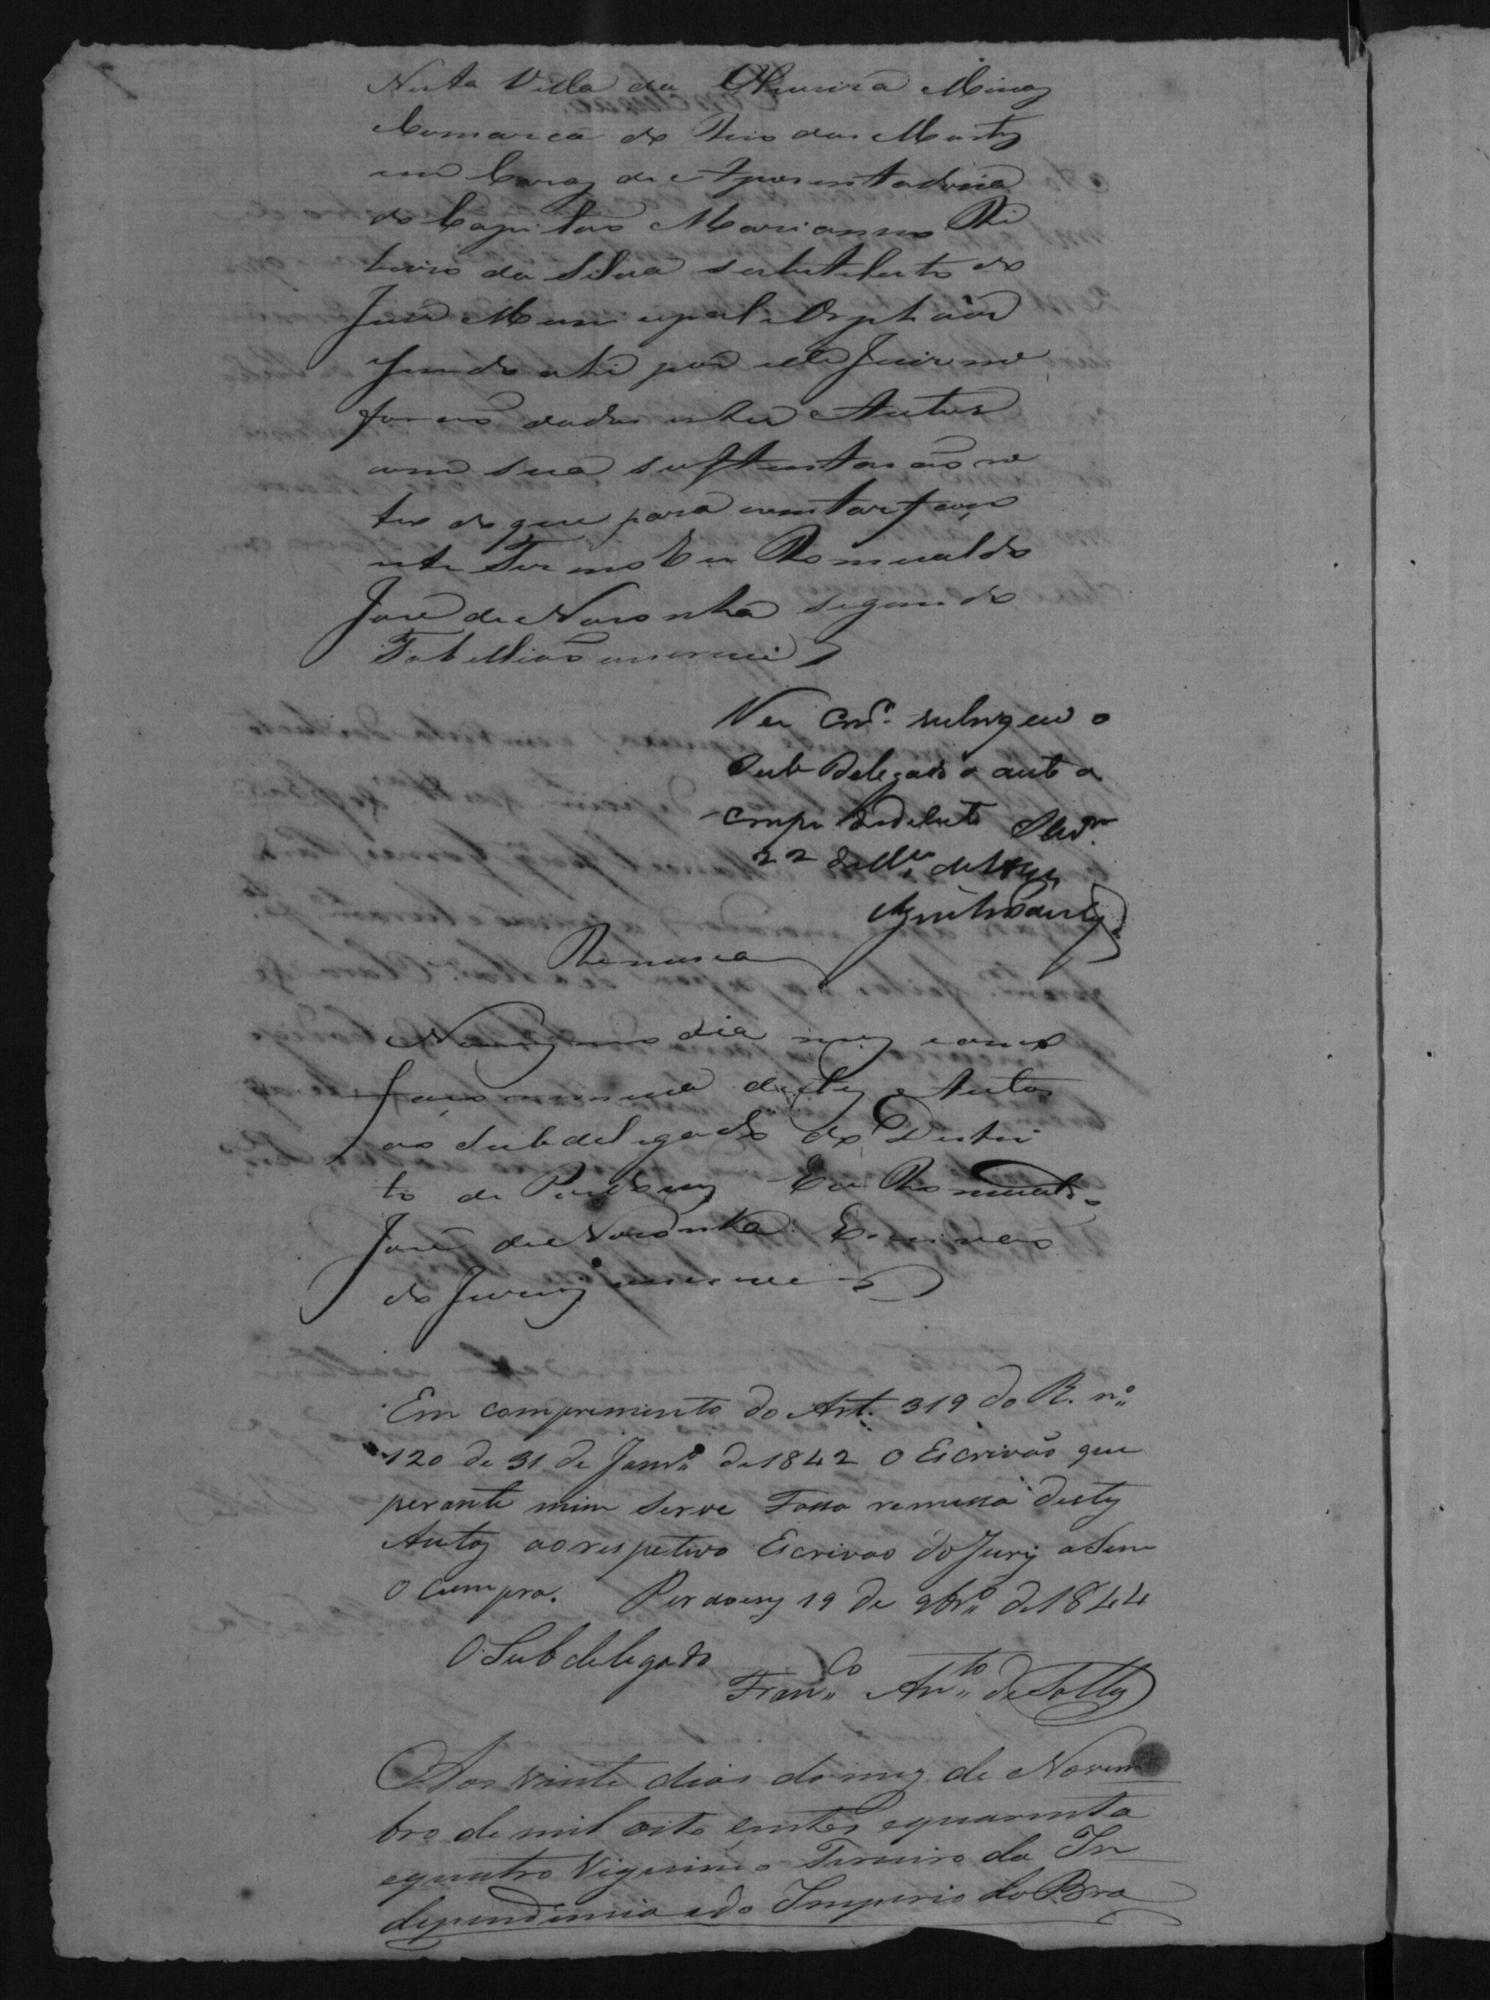 Nesta Villa da Oliveira Minas
Comarca do Rio das Mortes
em Cazas de Aposentadoria
do Capitão Marianno Ri
beiro da Silva substituto do
Juiz Municipal e Orphãos
sendo ahi por elle Juiz me
forão dados estes Autos
com sua sustentação re
tro do que para constar faço
este Termo Eu Romualdo
José de Noronha segundo
Tabellião escrevi
Sub Delegado o auto
22 de
Remessa
No mesmo dia mez e anno
faço remessa destes Autos
ao Subdelegado do Destri
to de Perdoens Eu Romualdo
José de Noronha Escrivão
do Jury escrevi
Em comprimento do Art. 319 do R. nº
120 de 31 de Janrº de 1842 O Escrivão que
perante mim serve Fassa remessa destes
Autos ao respetivo Escrivão do Jury assim
o cumpra. Perdoens 19 de 9brº de 1844
O Subdelegado
Franco Anto de Salles
Aos vinte dias do mez de Novem
bro de mil oito centos e quarenta
e quatro Vigesimo Terceiro da In
dependencia e do Imperio do Bra